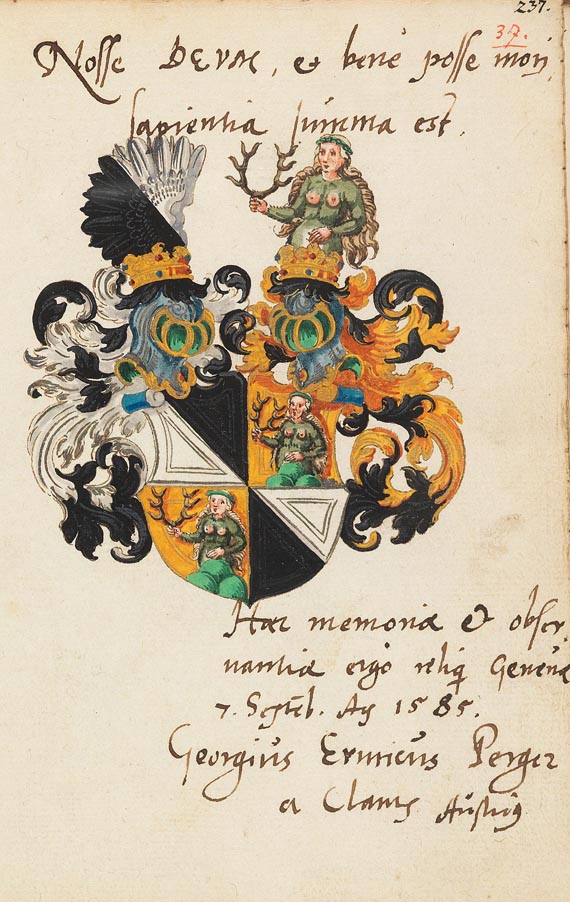 237.
37.
Nosse DEVM, et benè posse mori,
sapientia summa est.
Haec memoriae & obser-
vantiae ergò reliq Genevae
7. Septēb. Aō 1585.
Georgius Erenricus Perger
a Clams Austriꝰ